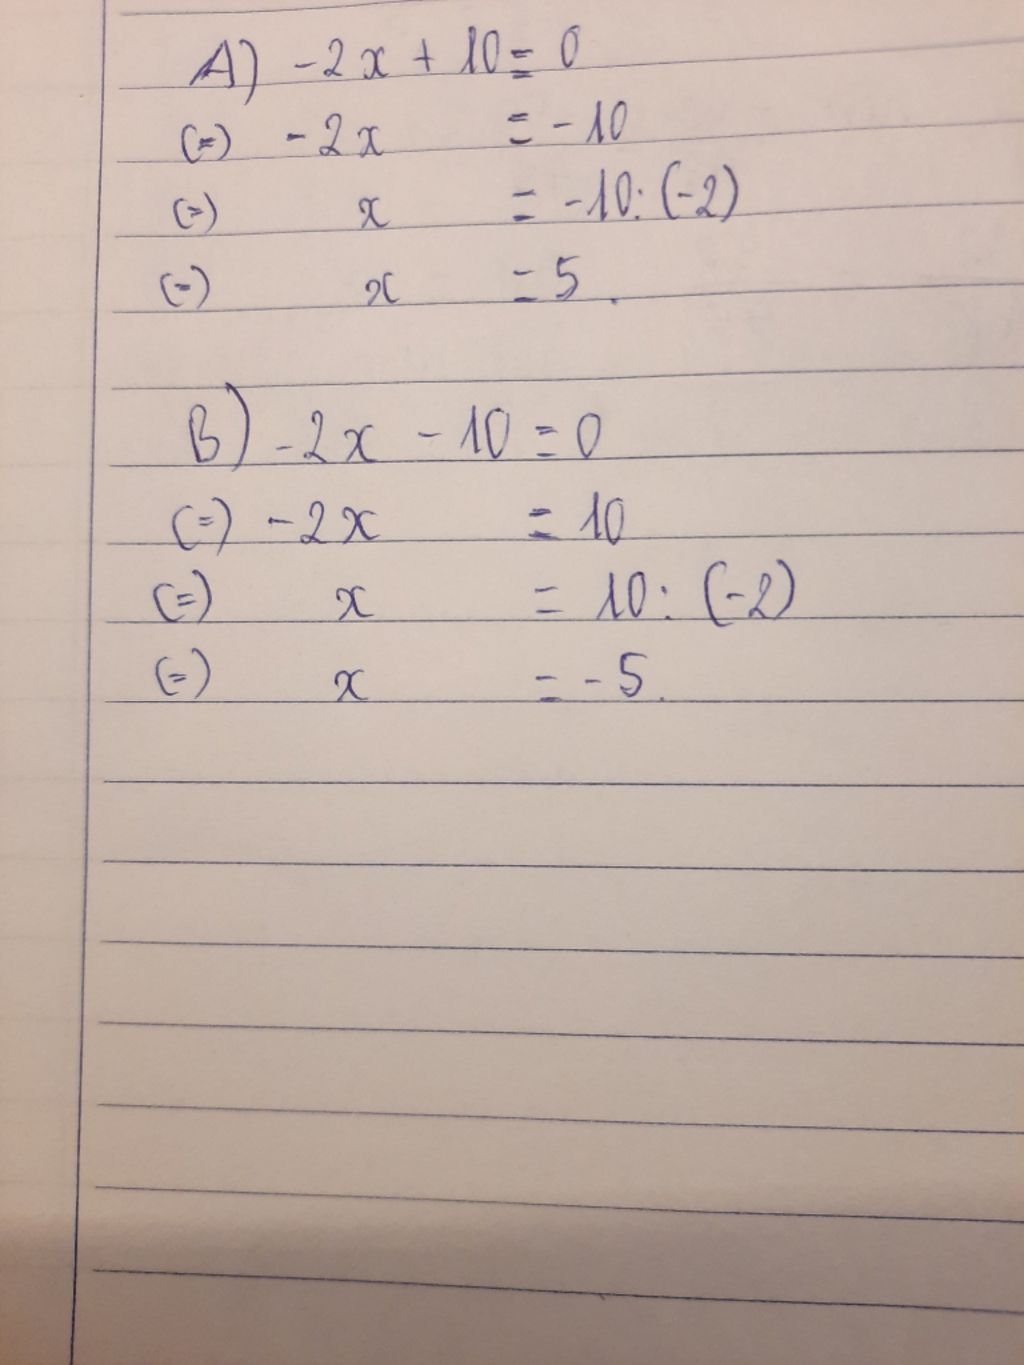 A) -2x + 10 = 0
(=) -2x = -10
(=) x = -10: (-2)
(=) x = 5.
B) -2x - 10 = 0
(=) -2x = 10
(=) x = 10: (-2)
(=) x = -5.